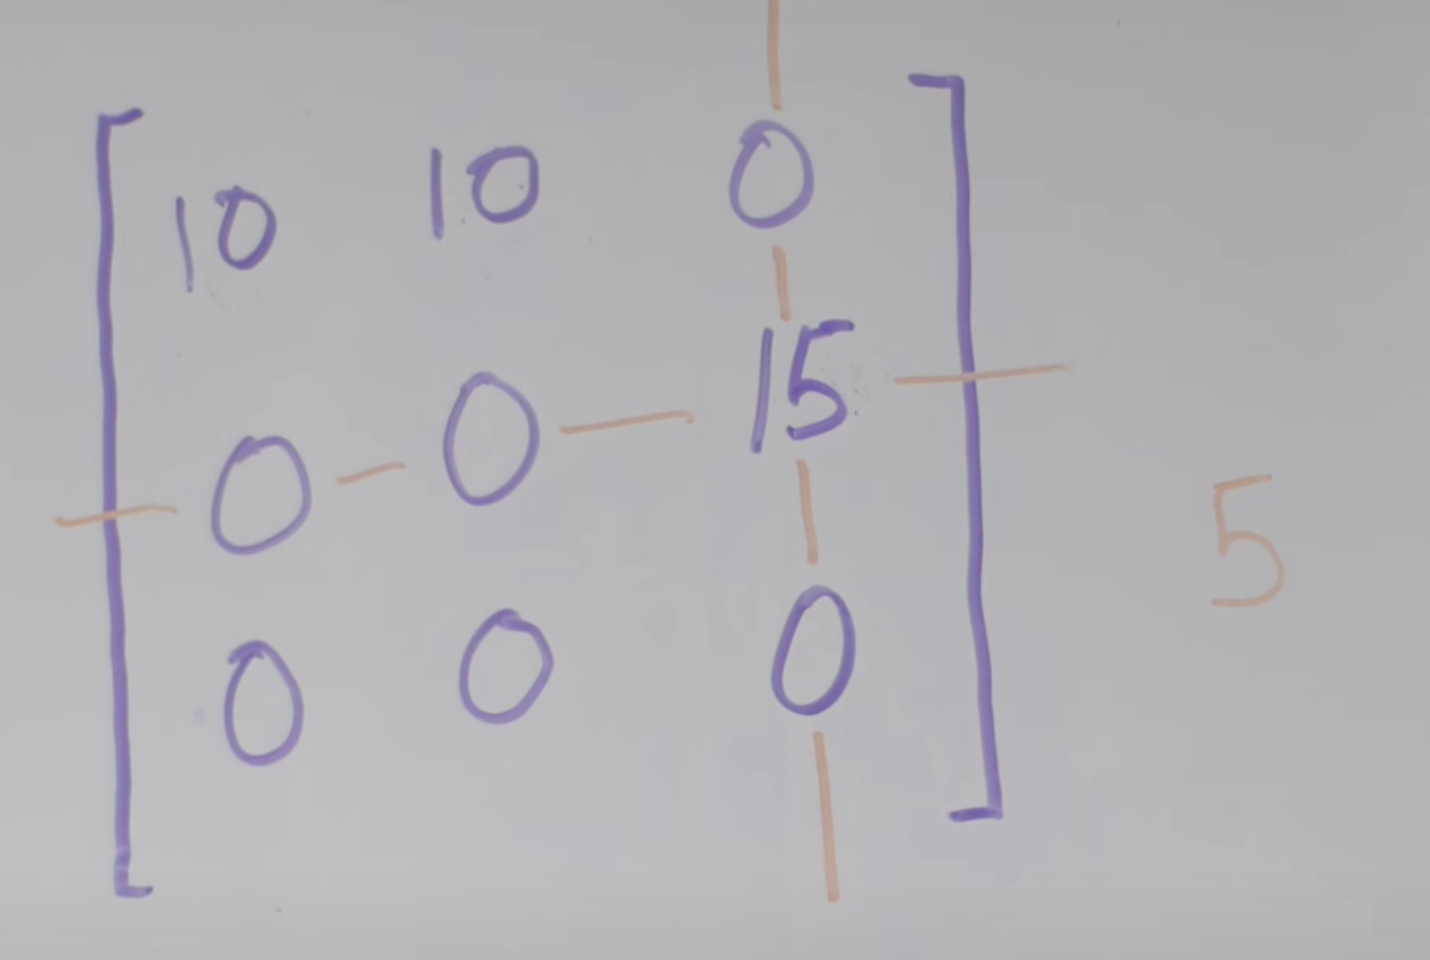 10 10 0
0 0 15
0 0 0
5